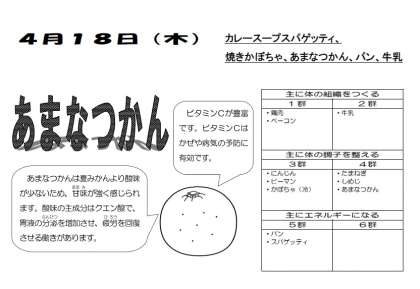 4月18日（木）
カレースープスパゲッティ、
焼きかぼちゃ、あまなつかん、パン、牛乳
あまなつかん
ビタミンCが豊富
です。ビタミンCは
かぜや病気の予防に
有効です。
あまなつかんは夏みかんより酸味
が少ないため、甘味が強く感じられ
ます。酸味の主成分はクエン酸で、
胃液の分泌を増加させ、疲労を回復
させる働きがあります。
主に体の組織をつくる
1群 2群
・鶏肉 ・牛乳
・ベーコン
主に体の調子を整える
3群 4群
・にんじん ・たまねぎ
・ピーマン ・しめじ
・かぼちゃ（冷） ・あまなつかん
主にエネルギーになる
5群 6群
・パン
・スパゲッティ